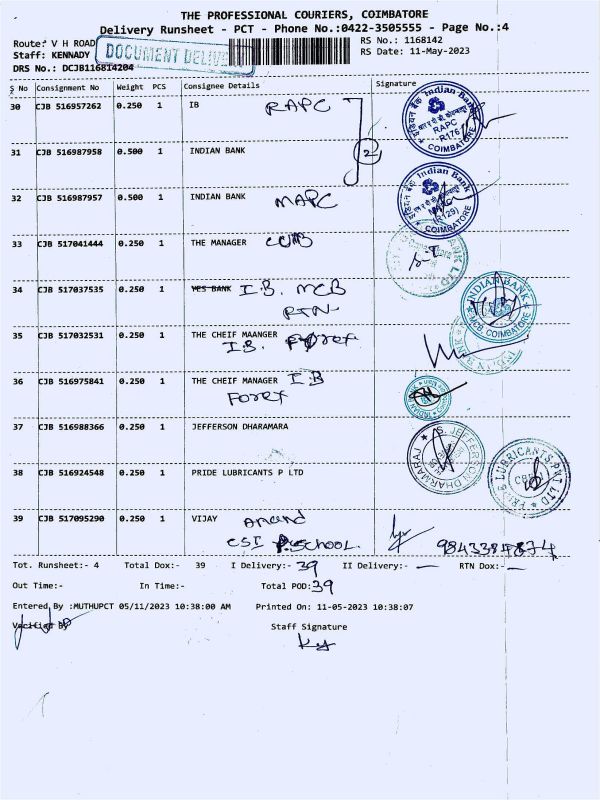 THE PROFESSIONAL COURIERS, COIMBATORE
Delivery Runsheet - PCT - Phone No.:0422-3505555 - Page No.:4
Route: V H ROAD
RS No.: 1168142
Staff: KENNADY
RS Date: 11-May-2023
DOCUMENT DELIVE
DRS No.: DCJB116814204
S No Consignment No Weight PCS Consignee Details Signature
30 CJB 516957262 0.250 1 IB RAPC
Indian Bank RAPC R176 COIMBATORE
31 CJB 516987958 0.500 1 INDIAN BANK
2
32 CJB 516987957 0.500 1 INDIAN BANK MAPC
Indian Bank COIMBATORE
33 CJB 517041444 0.250 1 THE MANAGER CUB
BANK LTD
34 CJB 517037535 0.250 1 YES BANK I.B. MCB
INDIAN BANK MCB, COIMBATORE
35 CJB 517032531 0.250 1 THE CHEIF MAANGER
I.B. Forex
INDIAN BANK
36 CJB 516975841 0.250 1 THE CHEIF MANAGER I B
Forex
INDIAN BANK
37 CJB 516988366 0.250 1 JEFFERSON DHARAMARA
S. JEFFERSON DHARMARAJ
38 CJB 516924548 0.250 1 PRIDE LUBRICANTS P LTD
PRIDE LUBRICANTS PVT LTD
39 CJB 517095290 0.250 1 VIJAY Anand
CSI SCHOOL.
Tot. Runsheet:- 4 Total Dox:- 39 I Delivery:- 39 II Delivery:- — RTN Dox:- —
Out Time:- In Time:- Total POD: 39
Entered By :MUTHUPCT 05/11/2023 10:38:00 AM Printed On: 11-05-2023 10:38:07
Verified By
Staff Signature